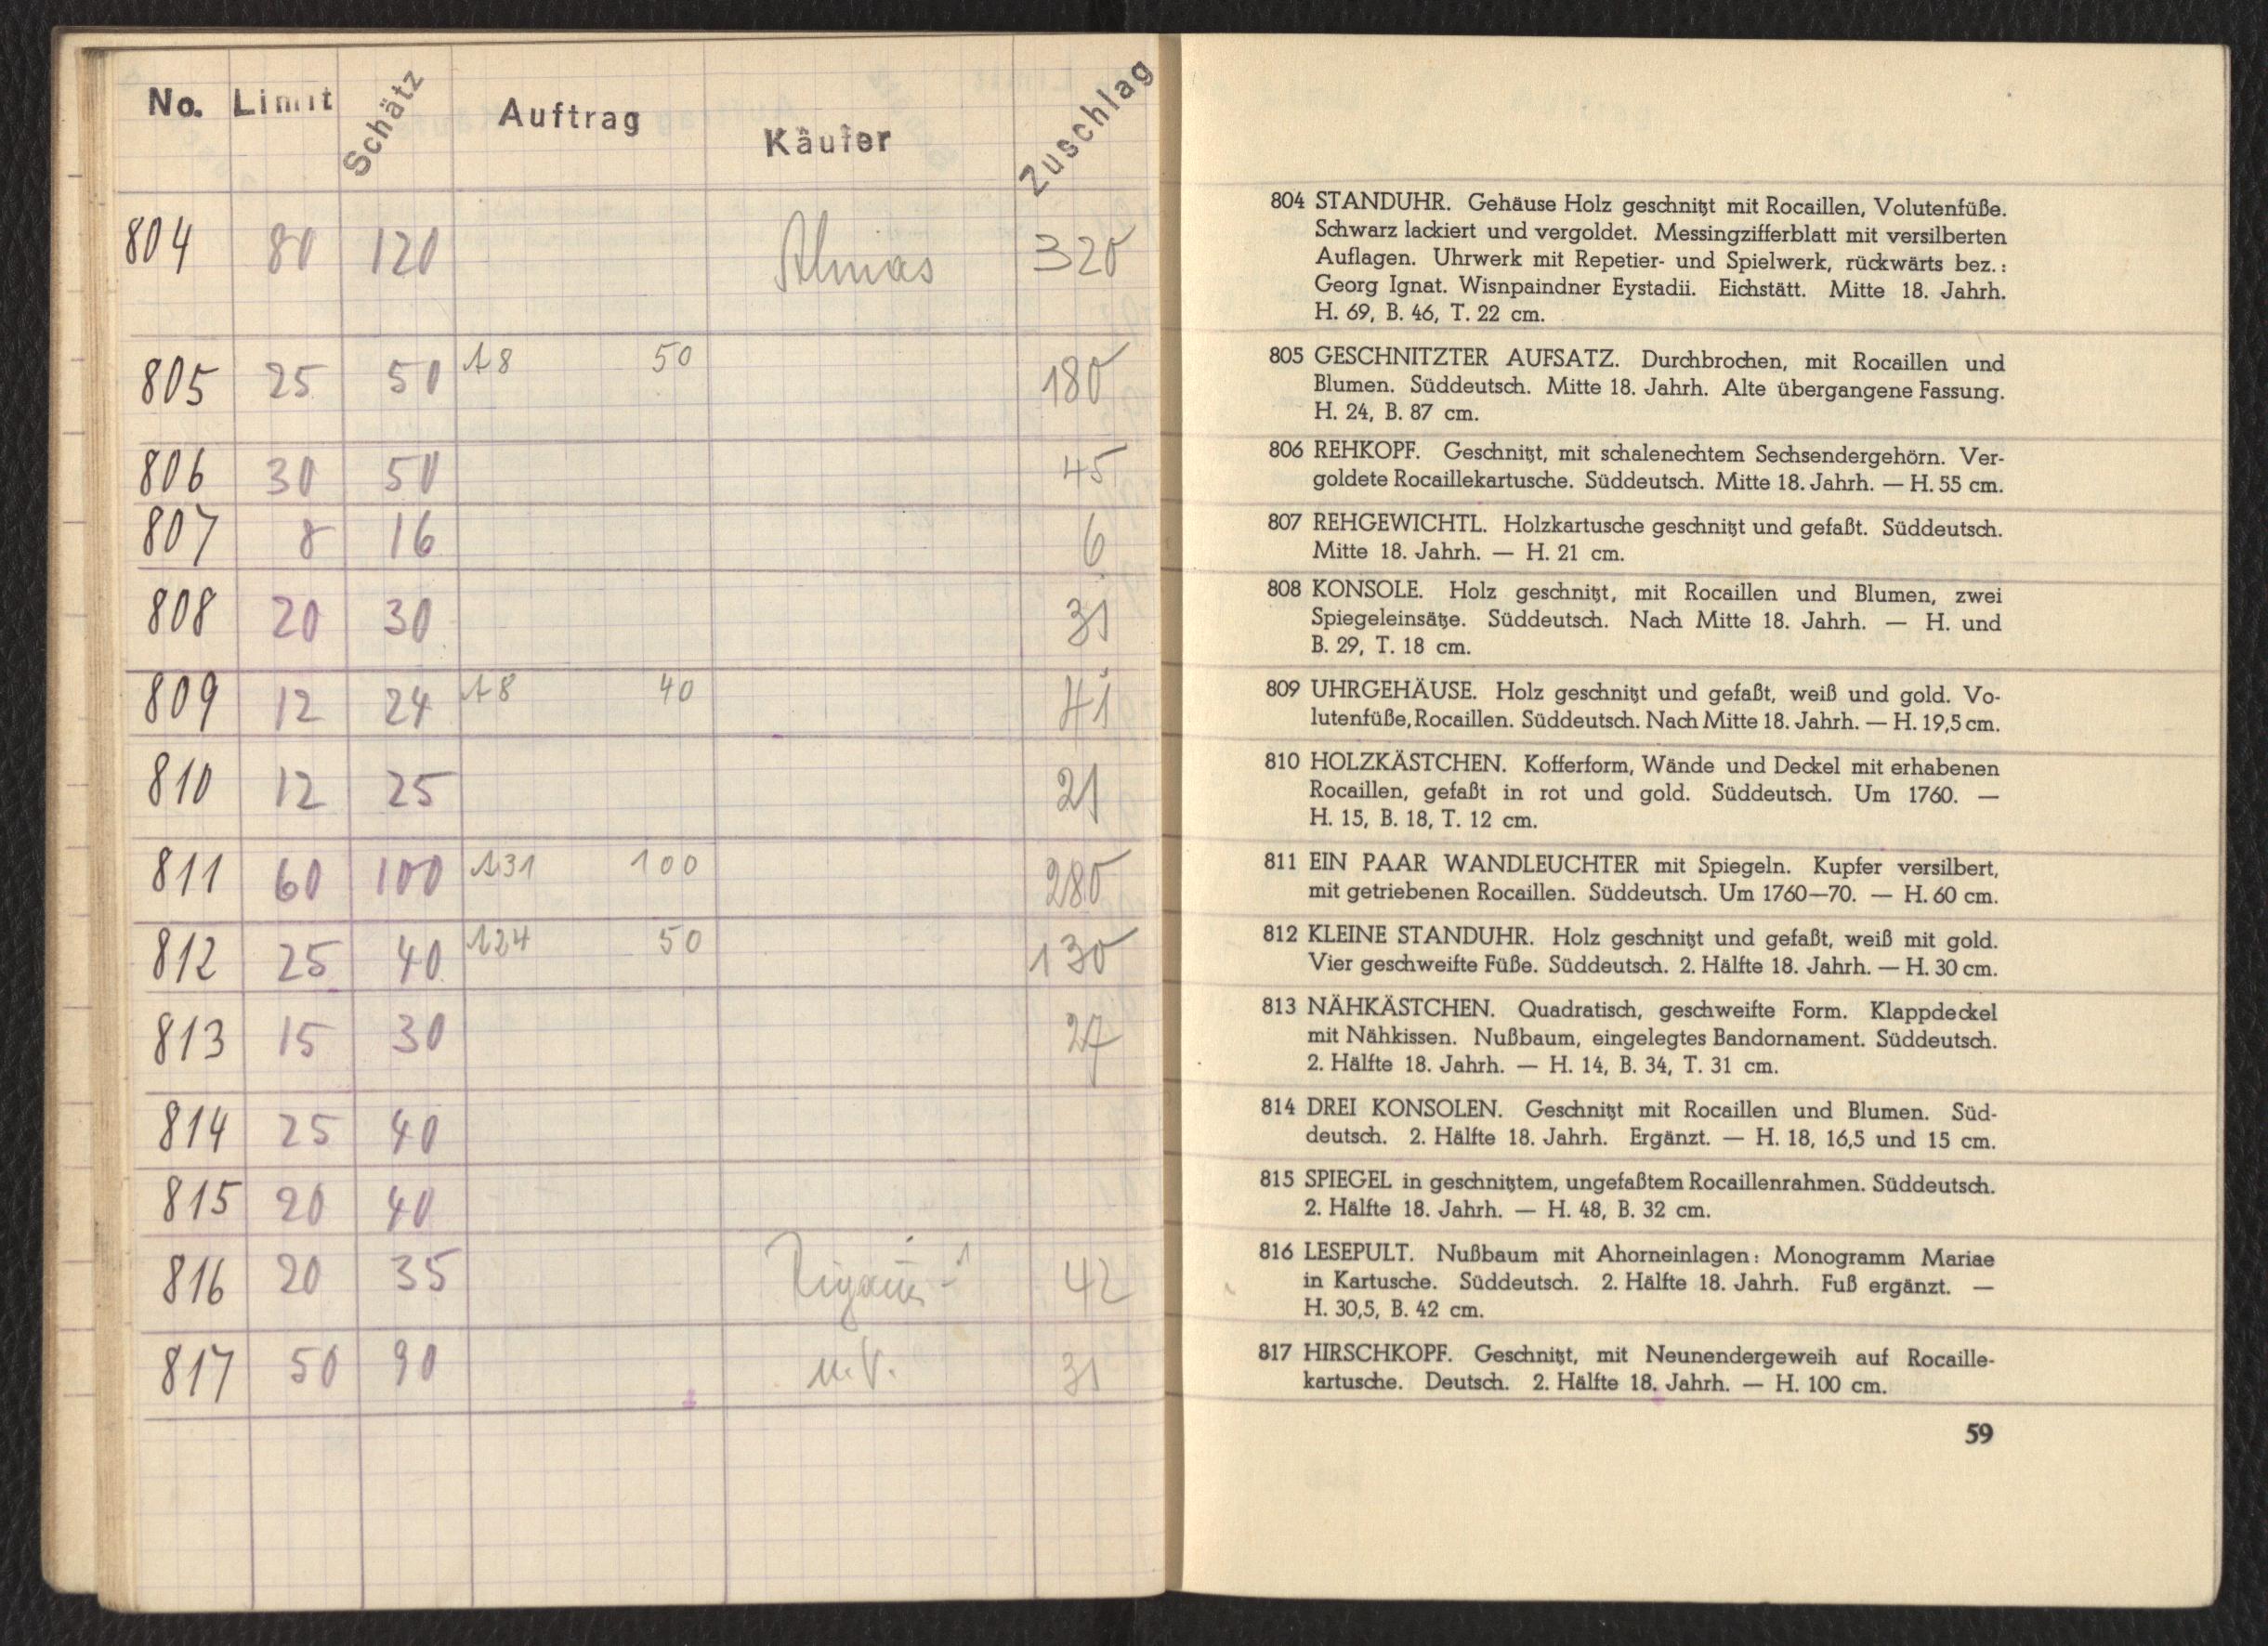 No. Limit Schätz Auftrag Käufer Zuschlag
804 80 120 Almas 320
805 25 50 A8 50 180
806 30 50 45
807 8 16 6
808 20 30 31
809 12 24 A8 40 41
810 12 25 21
811 60 100 A31 100 280
812 25 40 A24 50 130
813 15 30 27
814 25 40
815 20 40
816 20 35 42
817 50 90 u.V. 31
804 STANDUHR. Gehäuse Holz geschnitzt mit Rocaillen, Volutenfüße.
Schwarz lackiert und vergoldet. Messingzifferblatt mit versilberten
Auflagen. Uhrwerk mit Repetier- und Spielwerk, rückwärts bez.:
Georg Ignat. Wisnpaindner Eystadii. Eichstätt. Mitte 18. Jahrh.
H. 69, B. 46, T. 22 cm.
805 GESCHNITZTER AUFSATZ. Durchbrochen, mit Rocaillen und
Blumen. Süddeutsch. Mitte 18. Jahrh. Alte übergangene Fassung.
H. 24, B. 87 cm.
806 REHKOPF. Geschnitzt, mit schalenechtem Sechsendergehörn. Ver-
goldete Rocaillekartusche. Süddeutsch. Mitte 18. Jahrh. — H. 55 cm.
807 REHGEWICHTL. Holzkartusche geschnitzt und gefaßt. Süddeutsch.
Mitte 18. Jahrh. — H. 21 cm.
808 KONSOLE. Holz geschnitzt, mit Rocaillen und Blumen, zwei
Spiegeleinsätze. Süddeutsch. Nach Mitte 18. Jahrh. — H. und
B. 29, T. 18 cm.
809 UHRGEHÄUSE. Holz geschnitzt und gefaßt, weiß und gold. Vo-
lutenfüße, Rocaillen. Süddeutsch. Nach Mitte 18. Jahrh. — H. 19,5 cm.
810 HOLZKÄSTCHEN. Kofferform, Wände und Deckel mit erhabenen
Rocaillen, gefaßt in rot und gold. Süddeutsch. Um 1760. —
H. 15, B. 18, T. 12 cm.
811 EIN PAAR WANDLEUCHTER mit Spiegeln. Kupfer versilbert,
mit getriebenen Rocaillen. Süddeutsch. Um 1760—70. — H. 60 cm.
812 KLEINE STANDUHR. Holz geschnitzt und gefaßt, weiß mit gold.
Vier geschweifte Füße. Süddeutsch. 2. Hälfte 18. Jahrh. — H. 30 cm.
813 NÄHKÄSTCHEN. Quadratisch, geschweifte Form. Klappdeckel
mit Nähkissen. Nußbaum, eingelegtes Bandornament. Süddeutsch.
2. Hälfte 18. Jahrh. — H. 14, B. 34, T. 31 cm.
814 DREI KONSOLEN. Geschnitzt mit Rocaillen und Blumen. Süd-
deutsch. 2. Hälfte 18. Jahrh. Ergänzt. — H. 18, 16,5 und 15 cm.
815 SPIEGEL in geschnitztem, ungefaßtem Rocaillenrahmen. Süddeutsch.
2. Hälfte 18. Jahrh. — H. 48, B. 32 cm.
816 LESEPULT. Nußbaum mit Ahorneinlagen: Monogramm Mariae
in Kartusche. Süddeutsch. 2. Hälfte 18. Jahrh. Fuß ergänzt. —
H. 30,5, B. 42 cm.
817 HIRSCHKOPF. Geschnitzt, mit Neunendergeweih auf Rocaille-
kartusche. Deutsch. 2. Hälfte 18. Jahrh. — H. 100 cm.
59